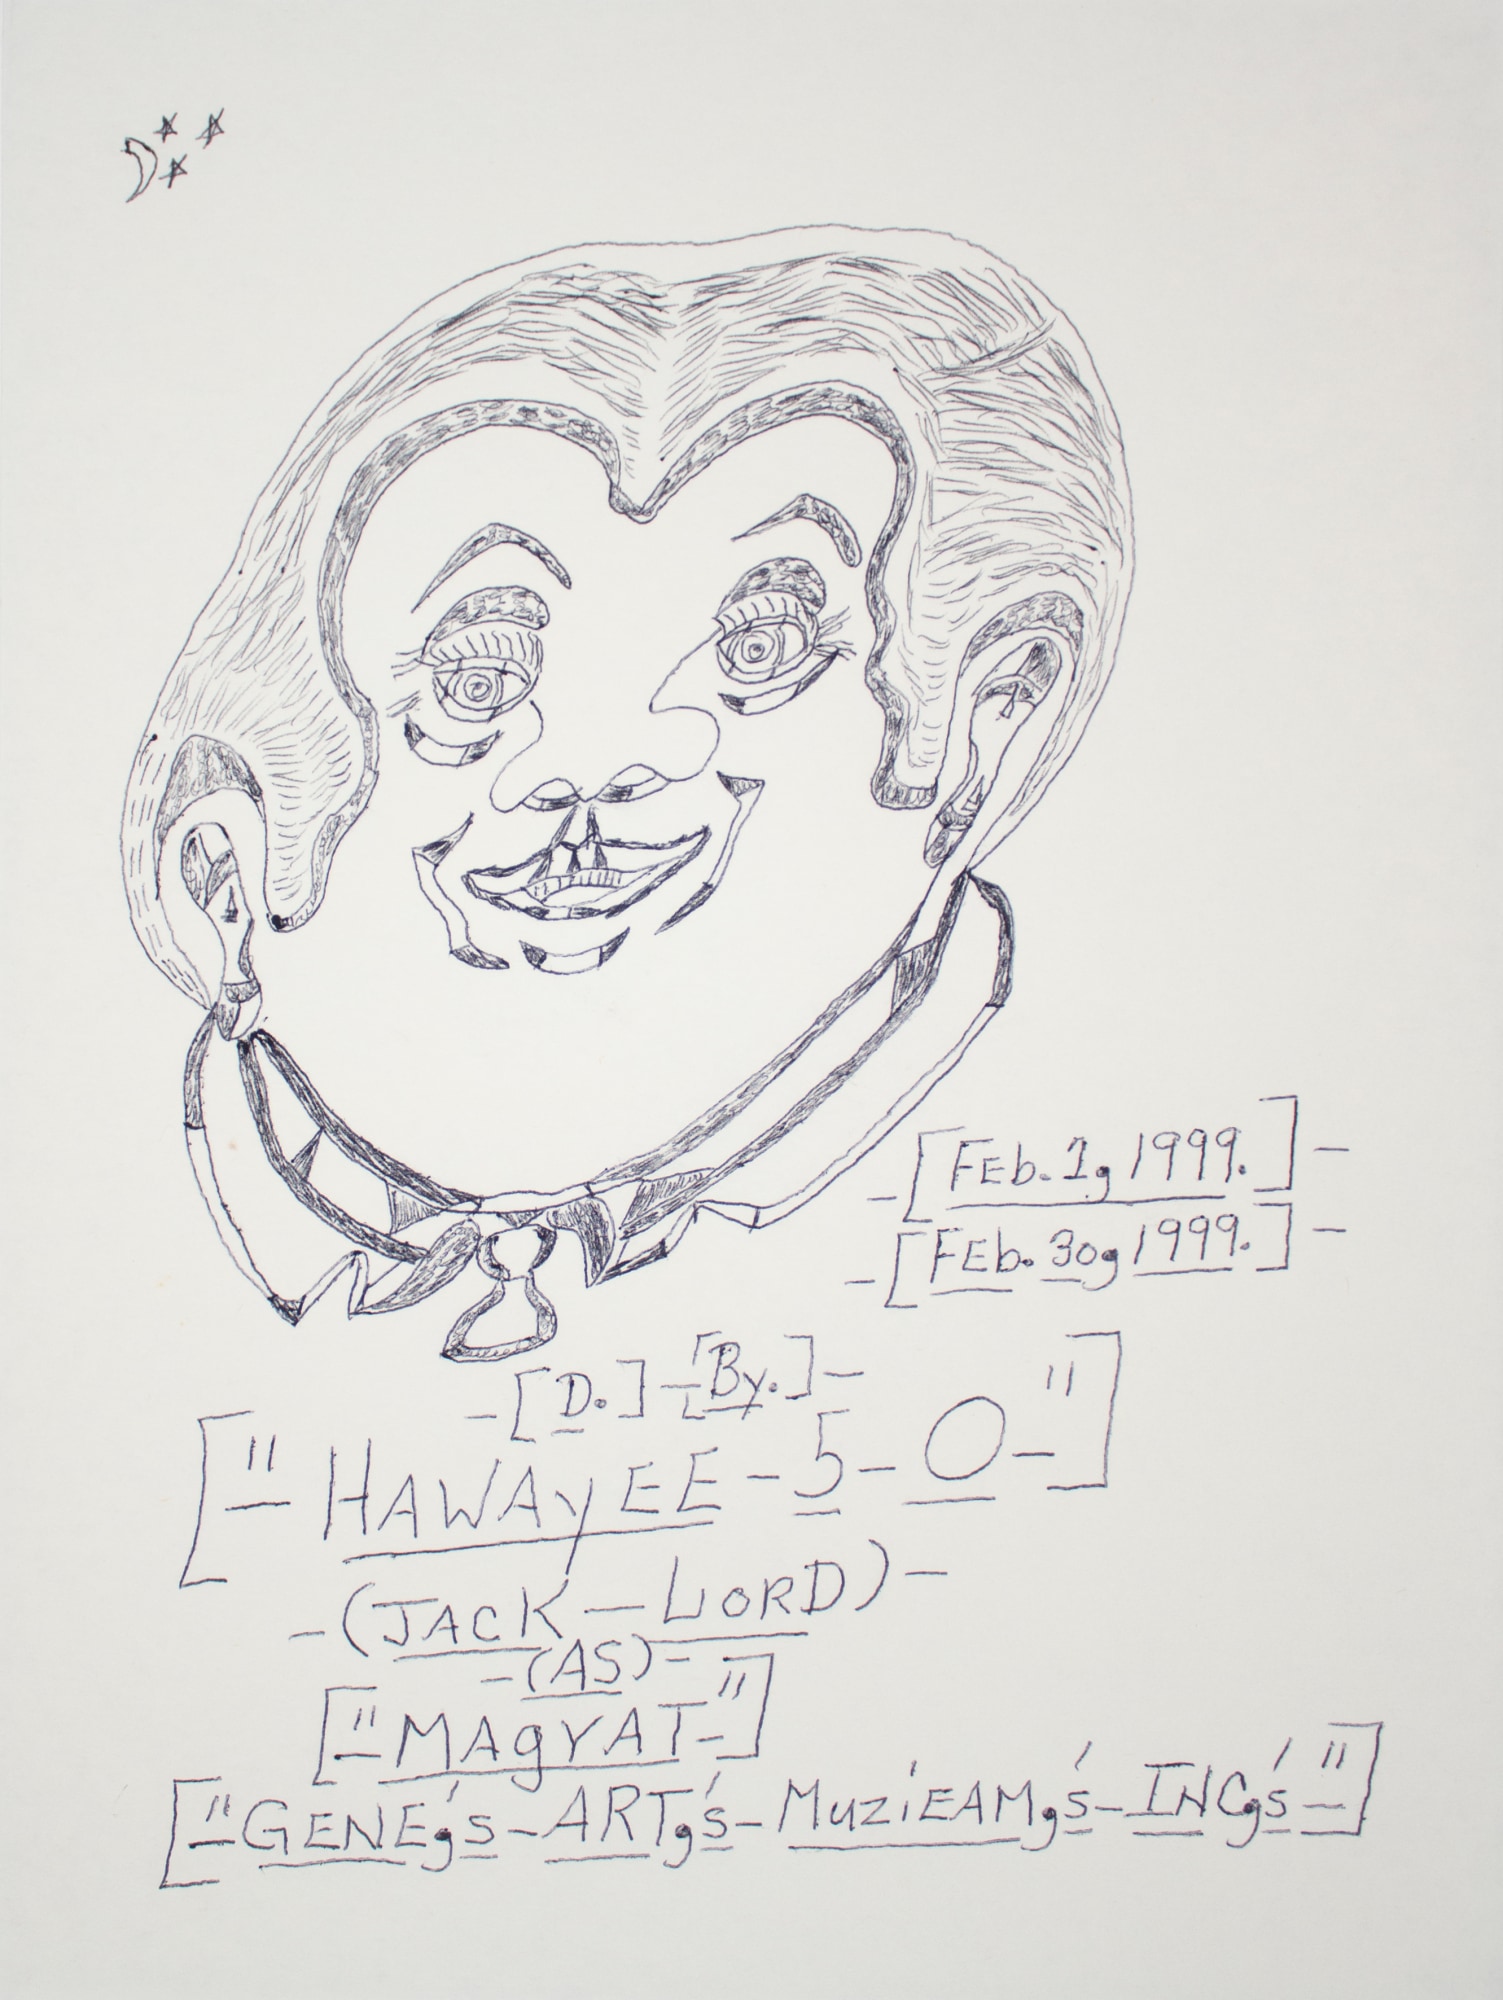 -[FEb. 1, 1999.]-
-[FEb. 30, 1999.]-
-[D.]-[By.]-
["- HAWAyEE - 5 - O -"]
-(JACK - LORD)-
-(AS)-
["- MAgYAT -"]
["- GENE,'s - ART,'s - MuziEAM,'s - INC,'s -"]